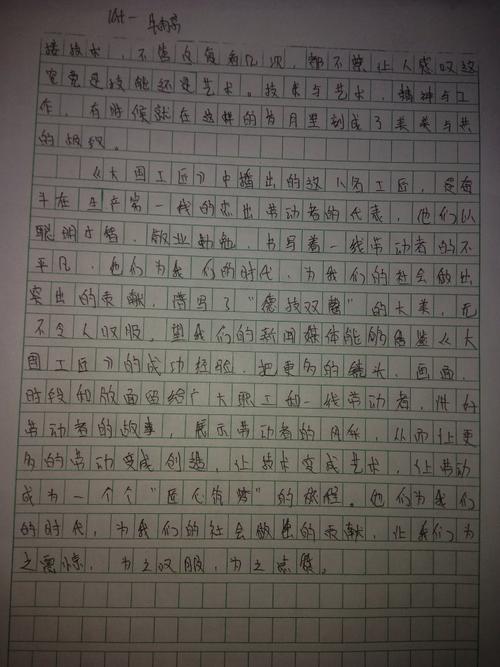 接技术，不管反复看几次，都不禁让人感叹这
究竟是技能还是艺术。技术与艺术，精神与工
作，有时候就在这样的岁月里刻成了美美与共
的
《大国工匠》中播出的这八名工匠，是奋
斗在生产第一线的杰出劳动者的代表，他们以
聪明才智，敬业勤勉，书写着一线劳动者的不
平凡，他们为我们的时代，为我们的社会做出
突出的贡献，谱写了“德技双馨”的大美，无
不令人叹服，望我们的新闻媒体能够借鉴《大
国工匠》的成功经验，把更多的镜头，画面，
时段和版面留给广大职工和一线劳动者，讲好
劳动者的故事，展示劳动者的风采，从而让更
多的劳动变成创造，让技术变成艺术，让劳动
成为一个个“匠心筑梦”的旅程。他们为我们
的时代，为我们的社会做出的贡献，让我们为
之震惊，为之叹服，为之点赞。